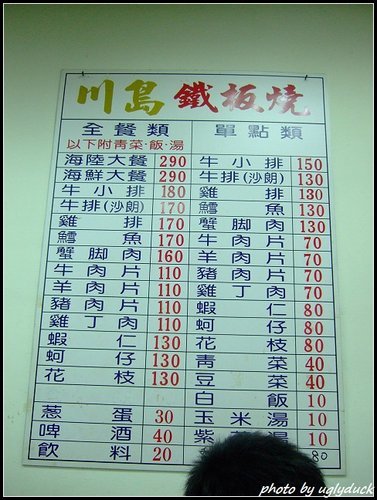 川島 鐵板燒
全餐類
以下附青菜·飯·湯
海陸大餐 290
海鮮大餐 290
牛小排 180
牛排(沙朗) 170
雞排 170
鱈魚 170
蟹脚肉 160
牛肉片 110
羊肉片 110
豬肉片 110
雞丁肉 110
蝦仁 130
蚵仔 130
花枝 130
蔥蛋 30
啤酒 40
飲料 20
單點類
牛小排 150
牛排(沙朗) 130
雞排 130
鱈魚 130
蟹脚肉 130
牛肉片 70
羊肉片 70
豬肉片 70
雞丁肉 70
蝦仁 80
蚵仔 80
花枝 80
青菜 40
豆菜 40
白飯 10
玉米湯 10
紫湯 10
80
photo by uglyduck